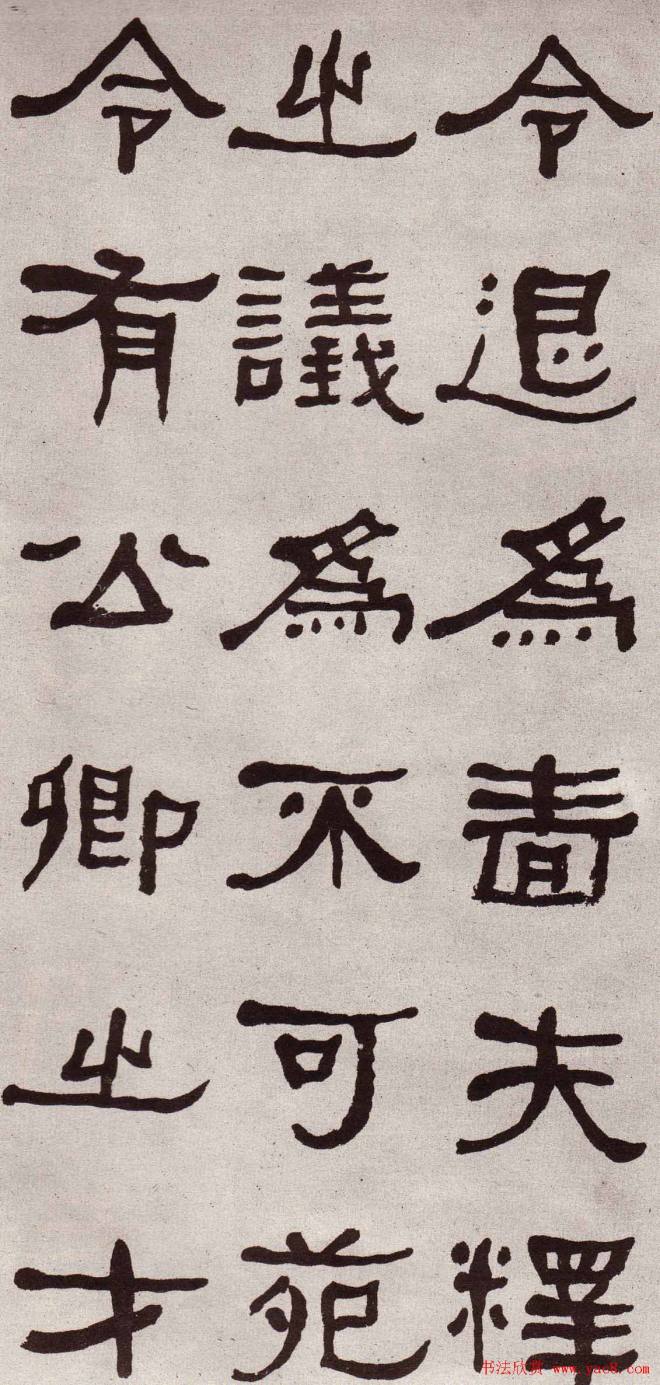 令退爲嗇夫釋
之議爲不可苑
令有公卿之才
书法欣赏 www.yac8.com